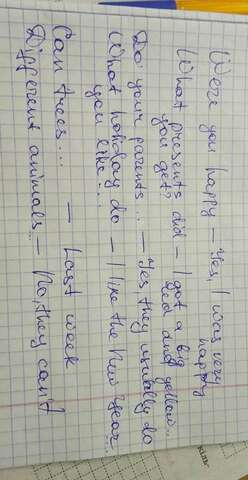 Were you happy – Yes, I was very
happy
What presents did – I got a big
you get? red and yellow...
Do your parents... – Yes, they usually do
What holiday do – I like the New Year...
you like...
Can trees... – Last week
Different animals – No, they can't